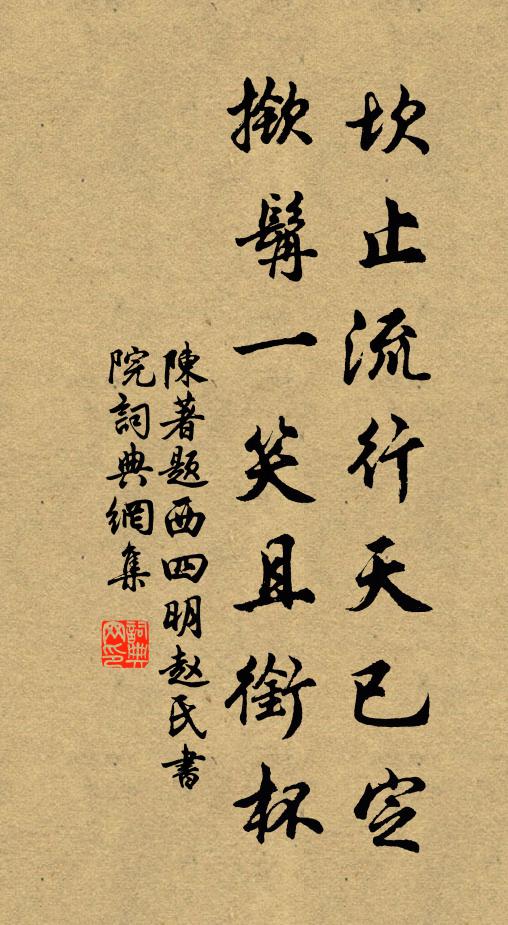 坎止流行天已定
掀髯一笑且銜杯
陳著题西四明赵氏書
院詞典網集
詞典
网印